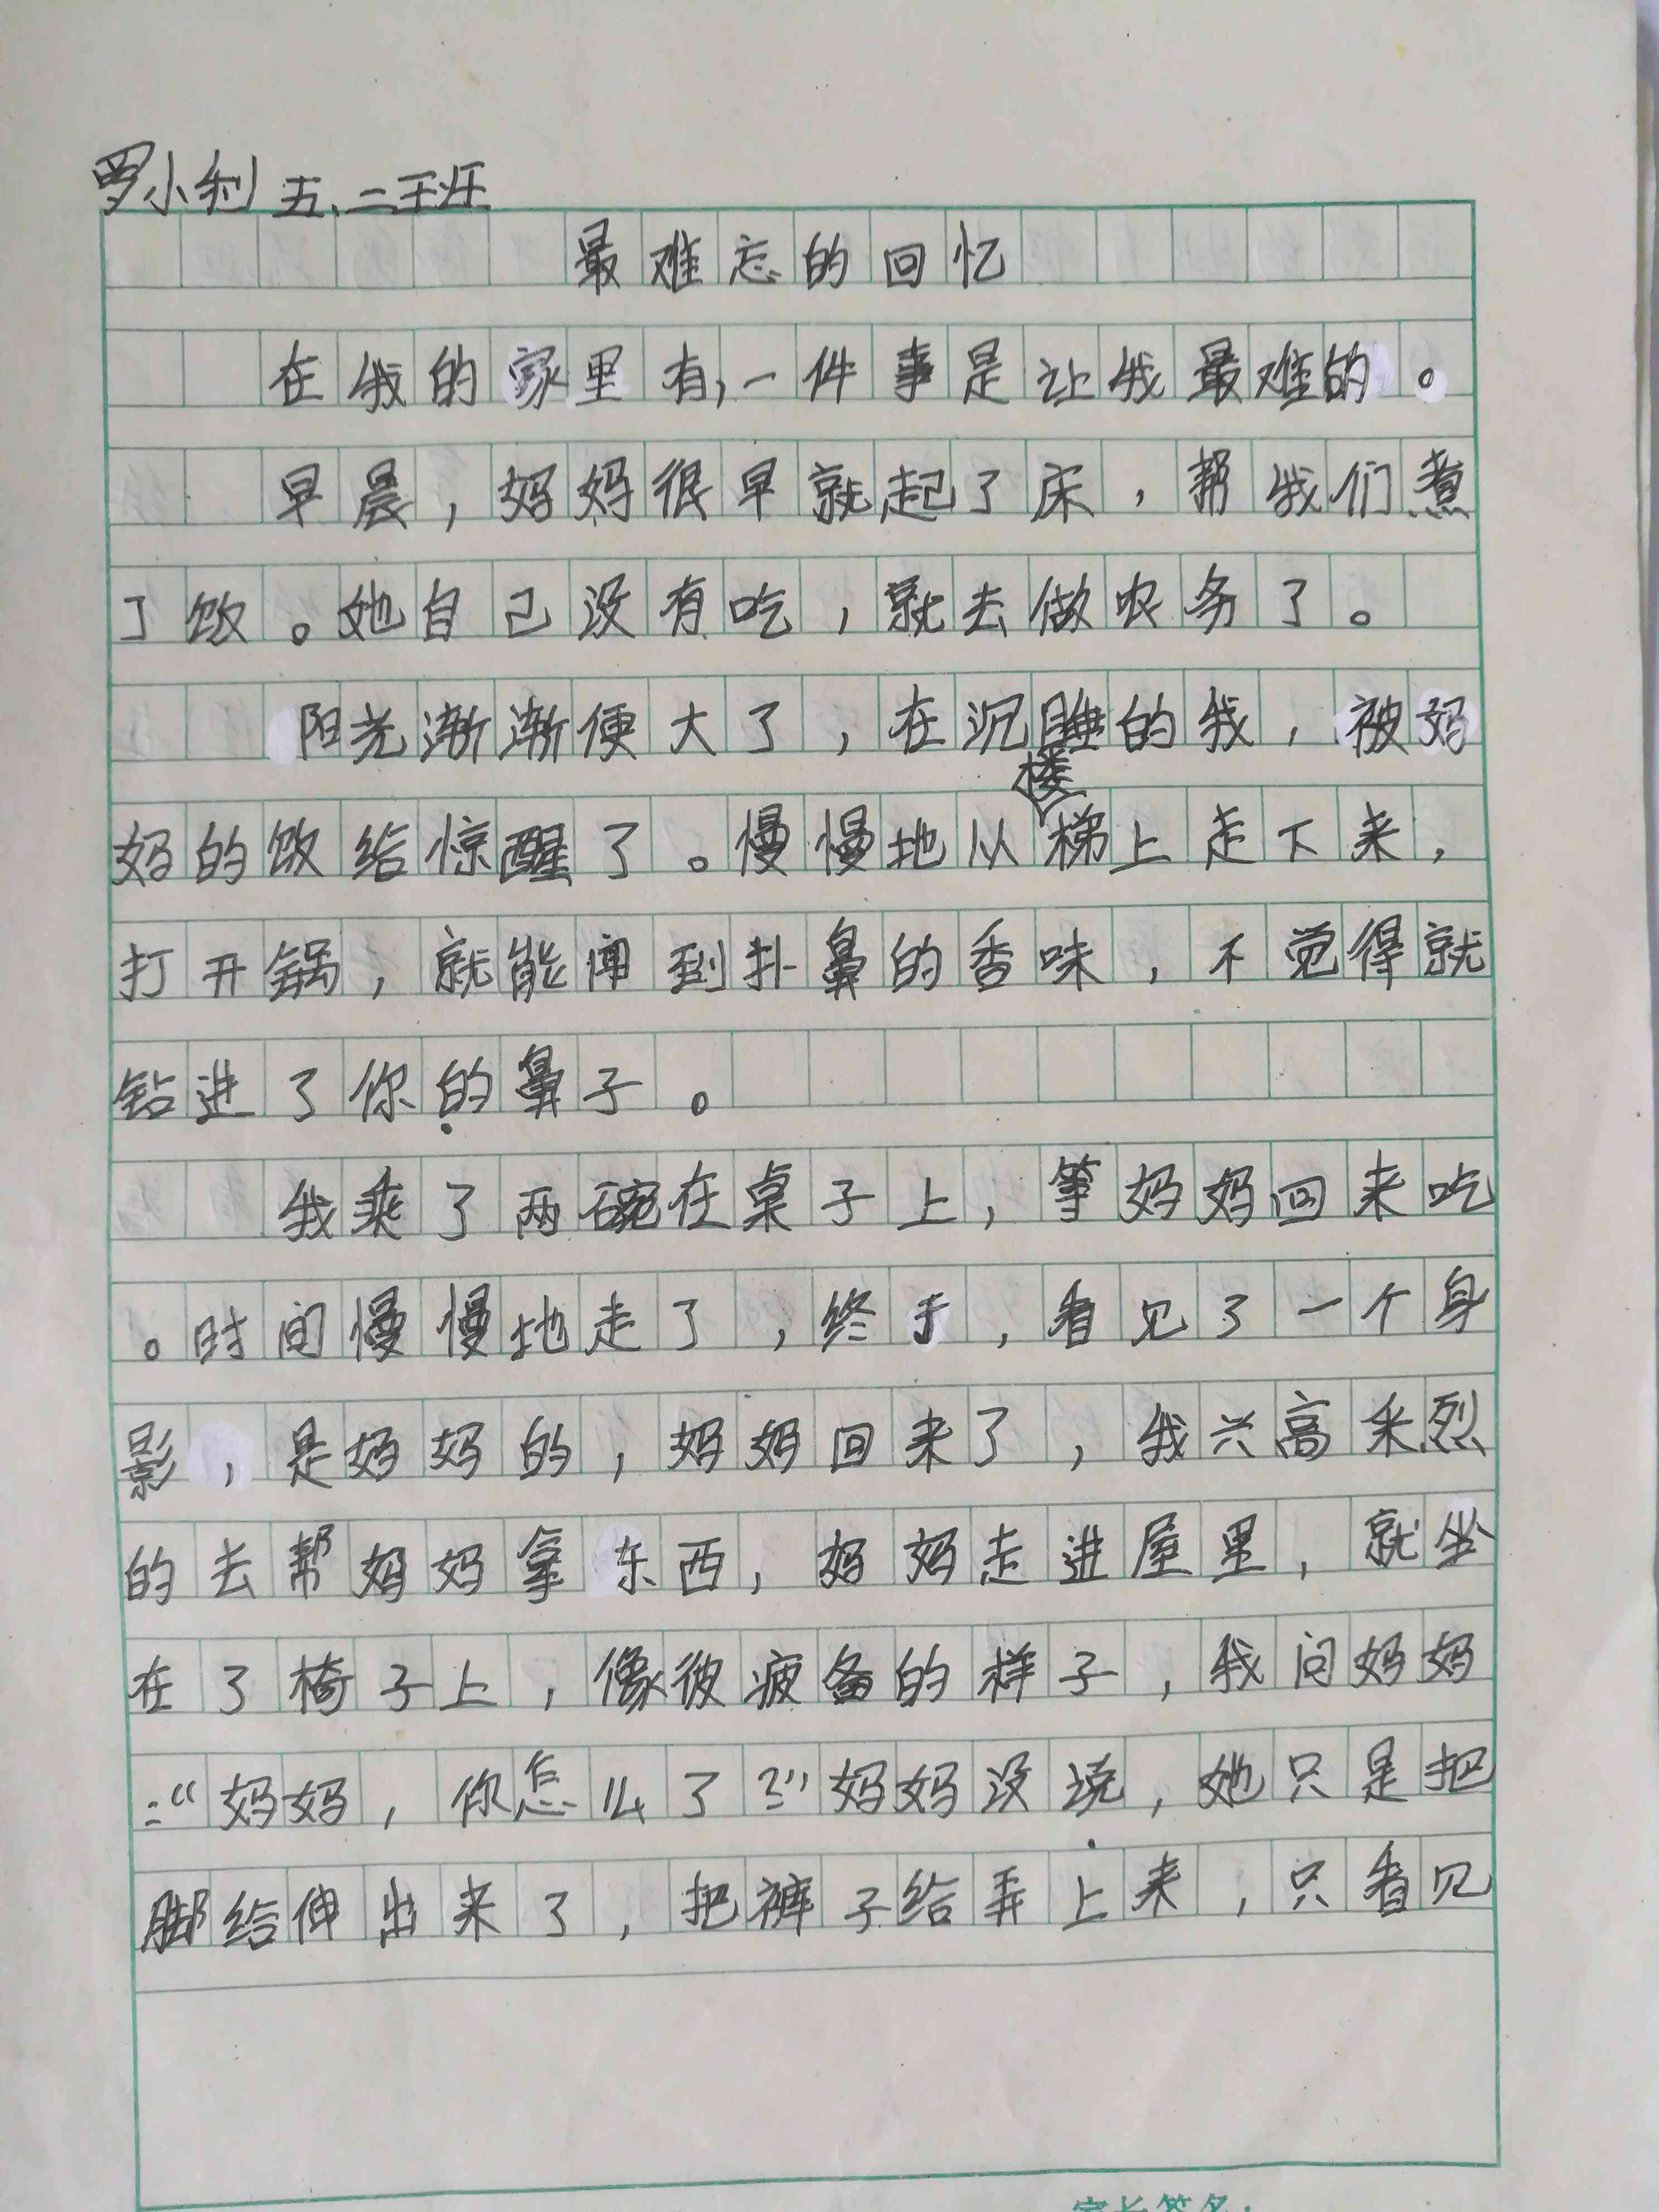 罗小利 五、二班
最难忘的回忆
在我的家里有，一件事是让我最难的。
早晨，妈妈很早就起了床，帮我们煮
了饭。她自己没有吃，就去做农务了。
阳光渐渐便大了，在沉睡的我，被妈
妈的饭给惊醒了。慢慢地从楼梯上走下来，
打开锅，就能闻到扑鼻的香味，不觉得就
钻进了你的鼻子。
我乘了两碗在桌子上，等妈妈回来吃
。时间慢慢地走了，终于，看见了一个身
影，是妈妈的，妈妈回来了，我兴高采烈
的去帮妈妈拿东西，妈妈走进屋里，就坐
在了椅子上，像彼疲备的样子，我问妈妈
：“妈妈，你怎么了？”妈妈没说，她只是把
脚给伸出来了，把裤子给弄上来，只看见